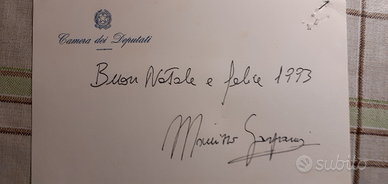 Camera dei Deputati
Buon Natale e felice 1993
Maurizio Gasparri
subito